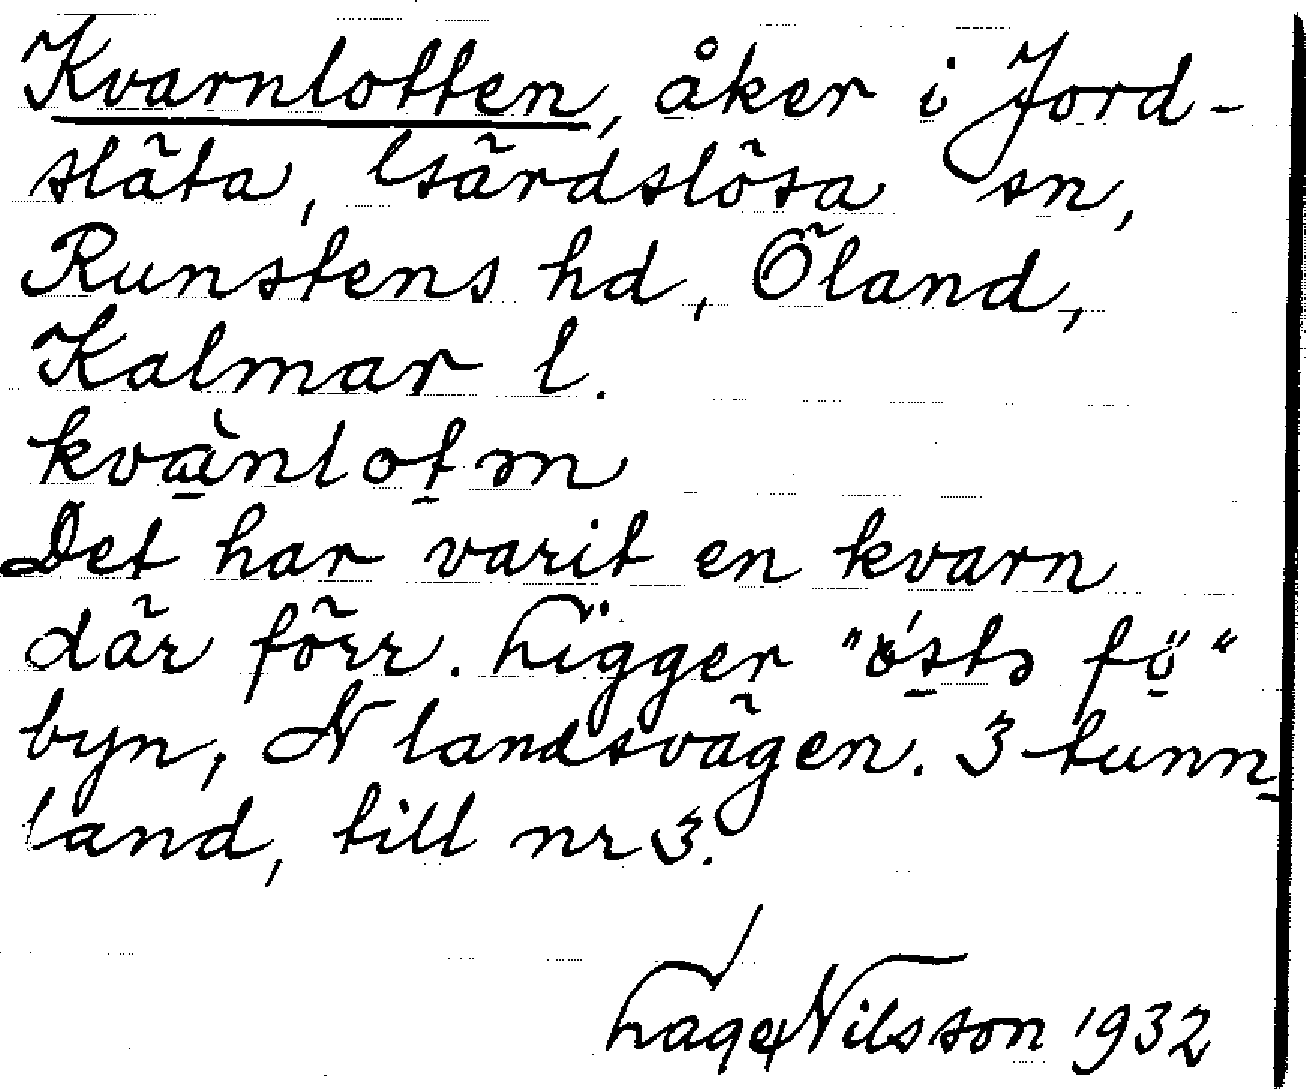 Kvarnlotten, åker i Jord-
släta, Gärdslösa sn,
Runstens hd, Öland,
Kalmar l.
kvànlotm
Det har varit en kvarn
där förr. Ligger "östə fö"
byn, N landsvägen. 3 tunn
land, till nr 3.
Lage Nilsson 1932